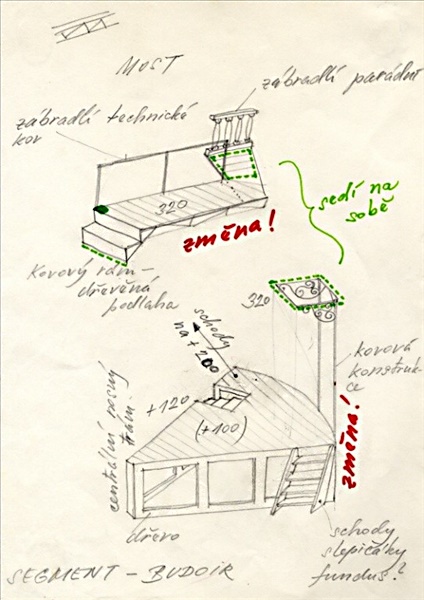 MOST
zábradlí parádní
zábradlí technické
kov
320
změna!
sedí na
sobě
kovový rám –
dřevěná
podlaha
320
schody
na +200
kovová
konstruk-
ce
+120
(+100)
centrální nosný
trám!
změna!
dřevo
schody
slepičáky
fundus?
SEGMENT – BUDOIR